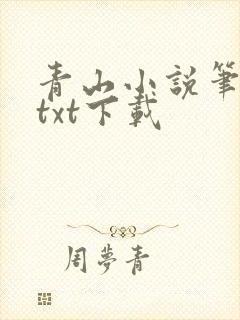 青山小説筆
txt下載
周夢青